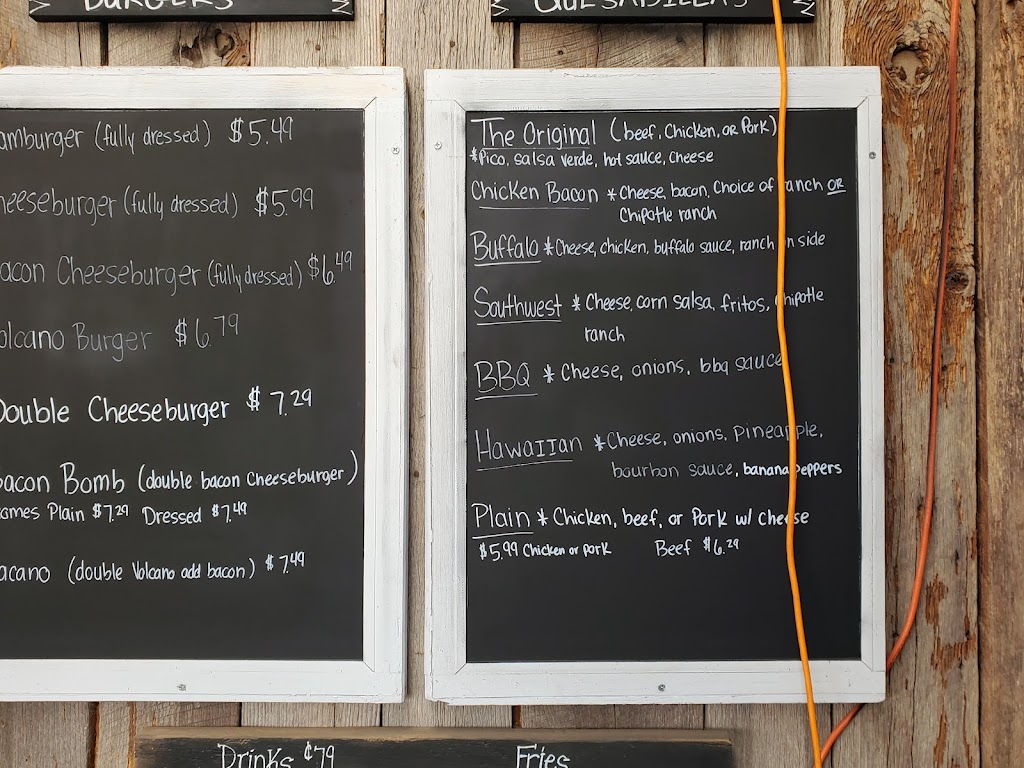 BURGERS
amburger (fully dressed) $5.49
heeseburger (fully dressed) $5.99
acon Cheeseburger (fully dressed) $6.49
olcano Burger $6.79
Double Cheeseburger $7.29
acon Bomb (double bacon Cheeseburger)
omes Plain $7.29 Dressed $7.49
acano (double Volcano add bacon) $7.49
QUESADILLAS
The Original (beef, Chicken, or Pork)
*Pico, salsa verde, hot sauce, cheese
Chicken Bacon *Cheese, bacon, Choice of ranch OR
Chipotle ranch
Buffalo *Cheese, chicken, buffalo sauce, ranch on side
Southwest *Cheese, corn salsa, fritos, chipotle
ranch
BBQ *Cheese, onions, bbq sauce
Hawaiian *Cheese, onions, pineapple,
bourbon sauce, banana peppers
Plain *Chicken, beef, or Pork w/ cheese
$5.99 Chicken or pork Beef $6.29
Drinks ¢79 Fries